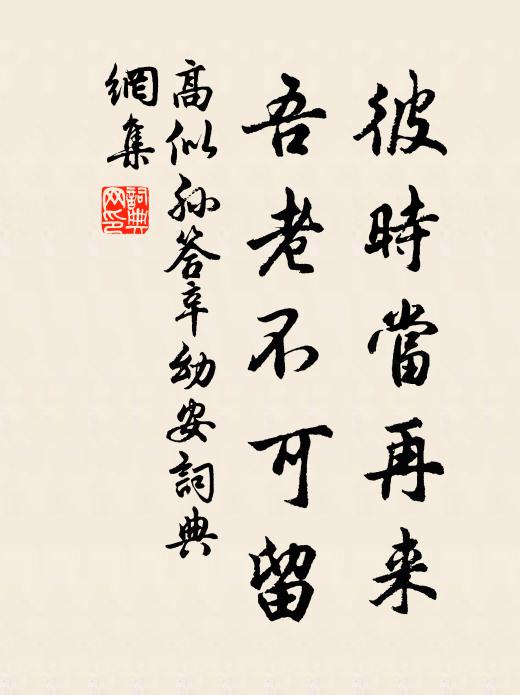 彼時當再来
吾老不可留
高似孙答辛幼安詞典
網集
詞典網印